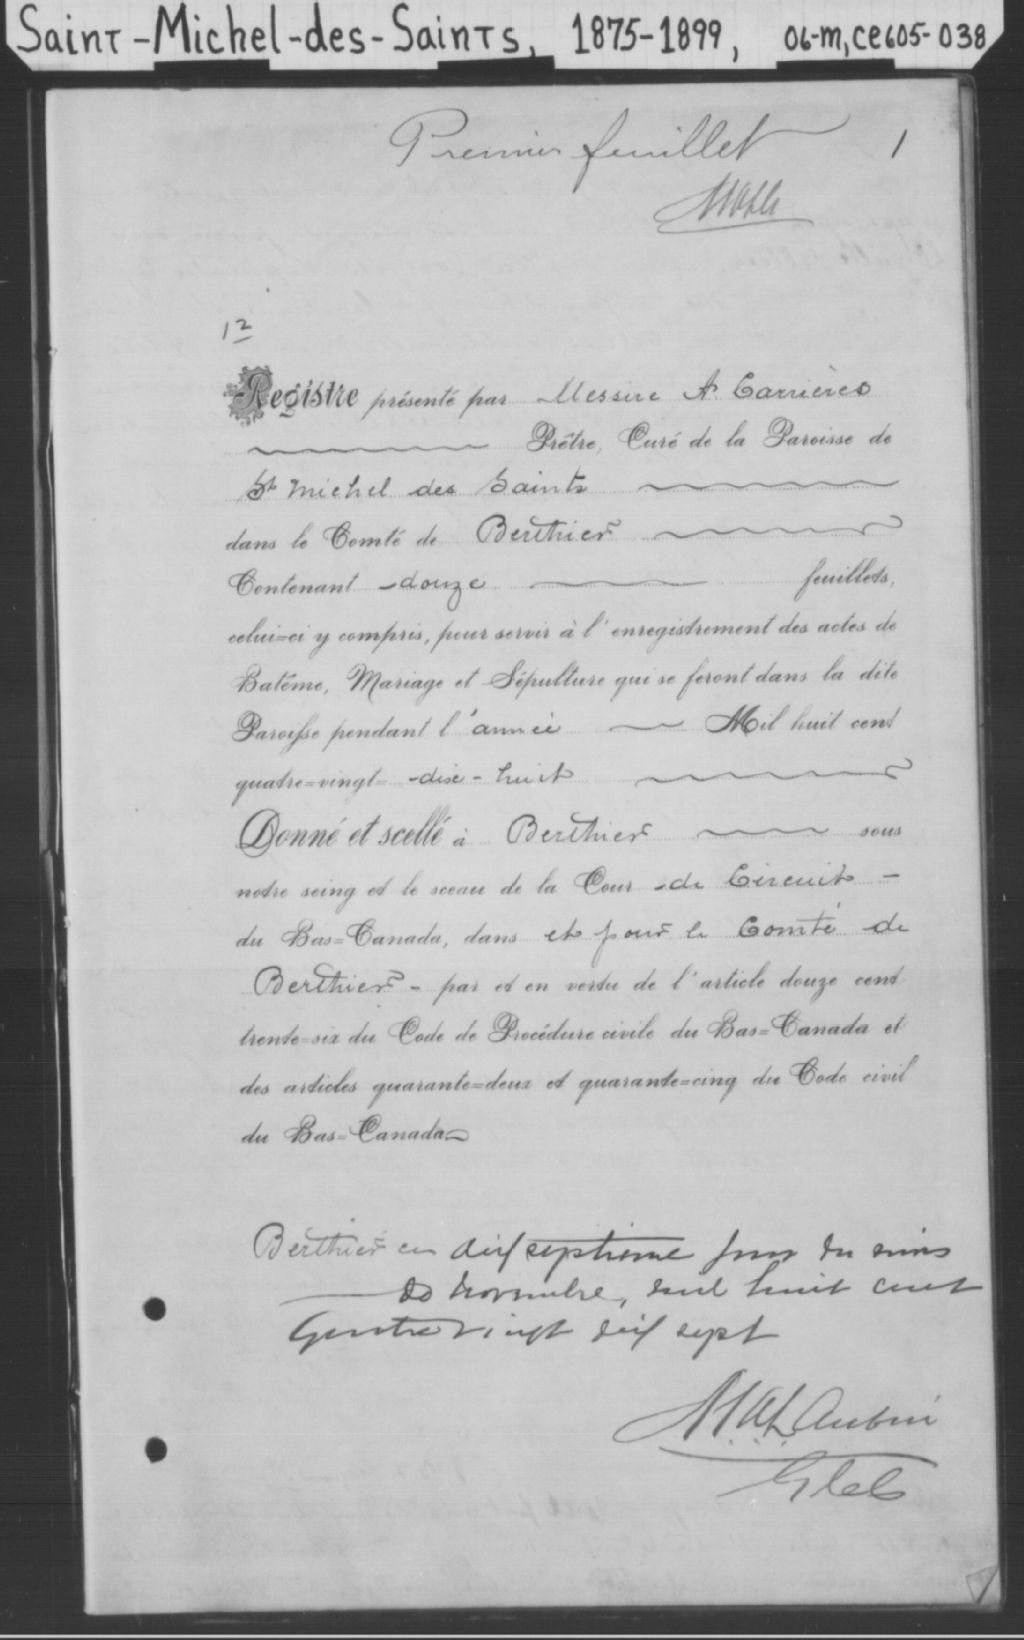 Saint-Michel-des-Saints, 1875-1899, 06-m, ce605-038
Premier feuillet 1
12
Registre présenté par Messire A. Carrières
Prêtre, Curé de la Paroisse de
St Michel des Saints
dans le Comté de Berthier
Contenant douze feuillets,
celui=ci y compris, pour servir à l'enregistrement des actes de
Batême, Mariage et Sépulture qui se feront dans la dite
Paroisse pendant l'année Mil huit cent
quatre=vingt-dix-huit
Donné et scellé à Berthier sous
notre seing et le sceau de la Cour de Circuit -
du Bas=Canada, dans et pour le Comté de
Berthier - par et en vertu de l'article douze cent
trente=six du Code de Procédure civile du Bas=Canada et
des articles quarante=deux et quarante=cinq du Code civil
du Bas=Canada
Berthier ce dix septieme jour du mois
de novembre, mil huit cent
Quatre vingt dix sept
Aubin